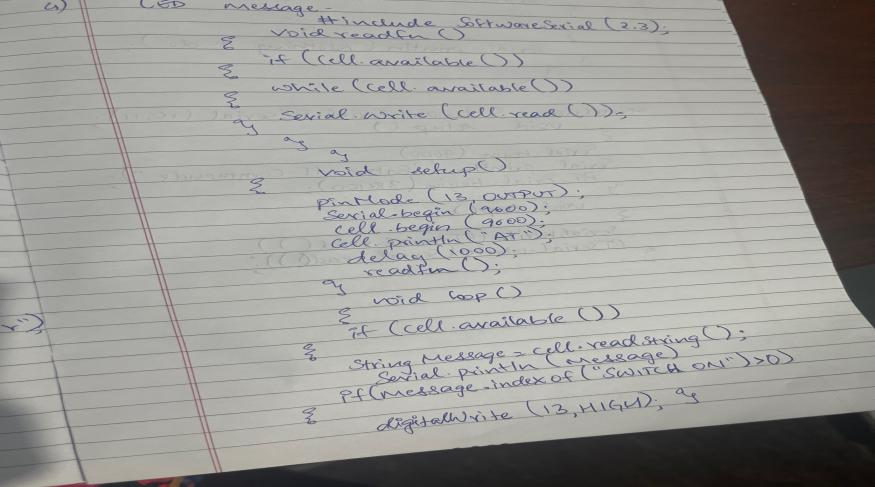 4) LED Message -
#include SoftwareSerial (2.3);
void readfn ()
{
if (cell.available())
{
while (cell.available())
{
Serial.write (cell.read());
}
}
}
void setup()
{
pinMode (13, OUTPUT);
Serial.begin (9600);
cell.begin (9600);
cell.println ("AT");
delay (1000);
readfn ();
}
void loop ()
{
if (cell.available ())
{
String Message = cell.readstring();
Serial.println (Message)
if (Message.indexof ("SWITCH ON") > 0)
{
digitalWrite (13, HIGH); }
r");